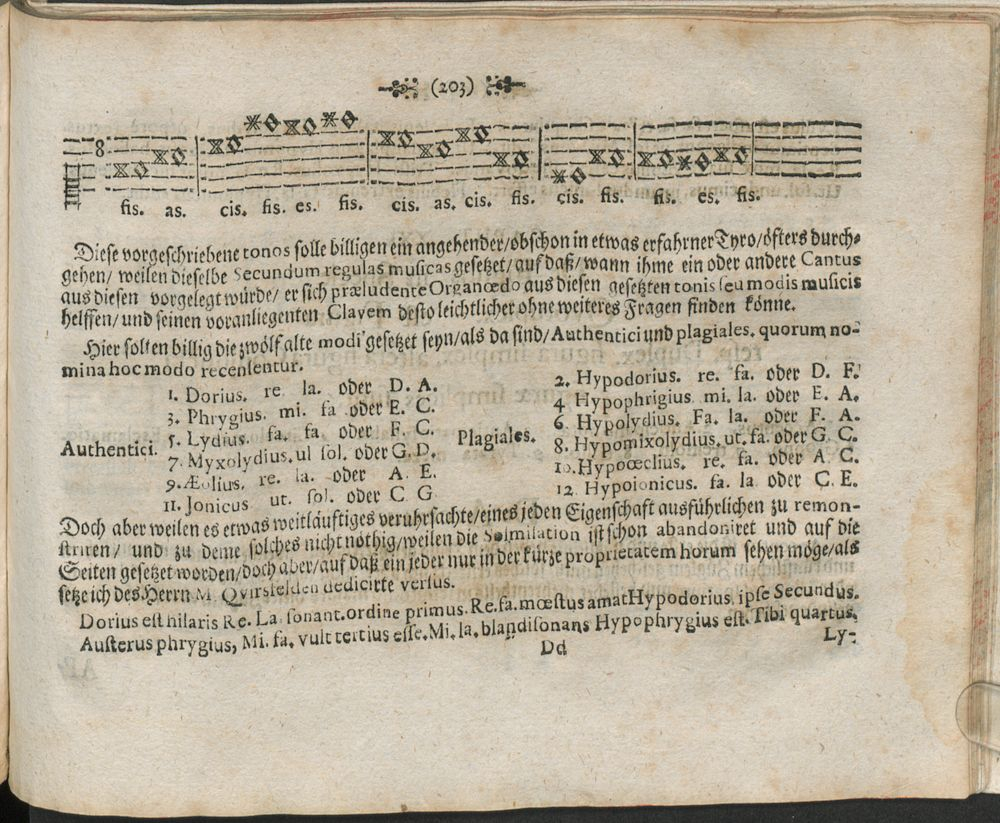 (203)
8
fis. as. cis. fis. es. fis. cis. as. cis. fis. cis. fis. fis. es. fis.
Diese vorgeschriebene tonos solle billigen ein angehender/obschon in etwas erfahrner Tyro/öfters durch-
gehen/ weilen dieselbe Secundum regulas musicas gesetzet/ auf daß/ wann ihme ein oder andere Cantus
aus diesen vorgelegt würde/ er sich præludente Organœdo aus diesen gesetzten tonis seu modis musicis
helffen/ und seinen voranliegenten Clavem desto leichtlicher ohne weiteres Fragen finden könne.
Hier sollen billig die zwölf alte modi gesetzet seyn/als da sind/Authentici und plagiales. quorum no-
mina hoc modo recensentur.
Authentici.
1. Dorius. re la. oder D. A.
3. Phrygius. mi. fa oder E. C.
5. Lydius. fa. fa. oder F. C.
7. Myxolydius. ul sol. oder G. D.
9. Æolius. re. la. oder A. E.
11. Jonicus ut. sol. oder C G
Plagiales.
2. Hypodorius. re. fa. oder D. F.
4 Hypophrigius mi. la. oder E. A.
6. Hypolydius. Fa. la. oder F. A.
8. Hypomixolydius. ut. fa. oder G. C.
10. Hypoœclius. re. fa. oder A. C.
12. Hypoionicus. fa. la. oder C. E.
Doch aber weilen es etwas weitläuftiges veruhrsachte/eines jeden Eigenschaft ausführlichen zu remon-
striren/ und zu deme solches nicht nöthig/weilen die Solmilation ist schon abandoniret und auf die
Seiten gesetzet worden/doch aber/auf daß ein jeder nur in der kürze proprietatem horum sehen möge/als
setze ich des Herrn M. Qvirsfelden dedicirte versus.
Dorius est hilaris Re. La. sonant. ordine primus. Re. fa. mœstus amat Hypodorius. ipse Secundus.
Austerus phrygius, Mi. fa. vult tertius esse. Mi. la. blandisonans Hypophrygius est. Tibi quartus.
Dd Ly-